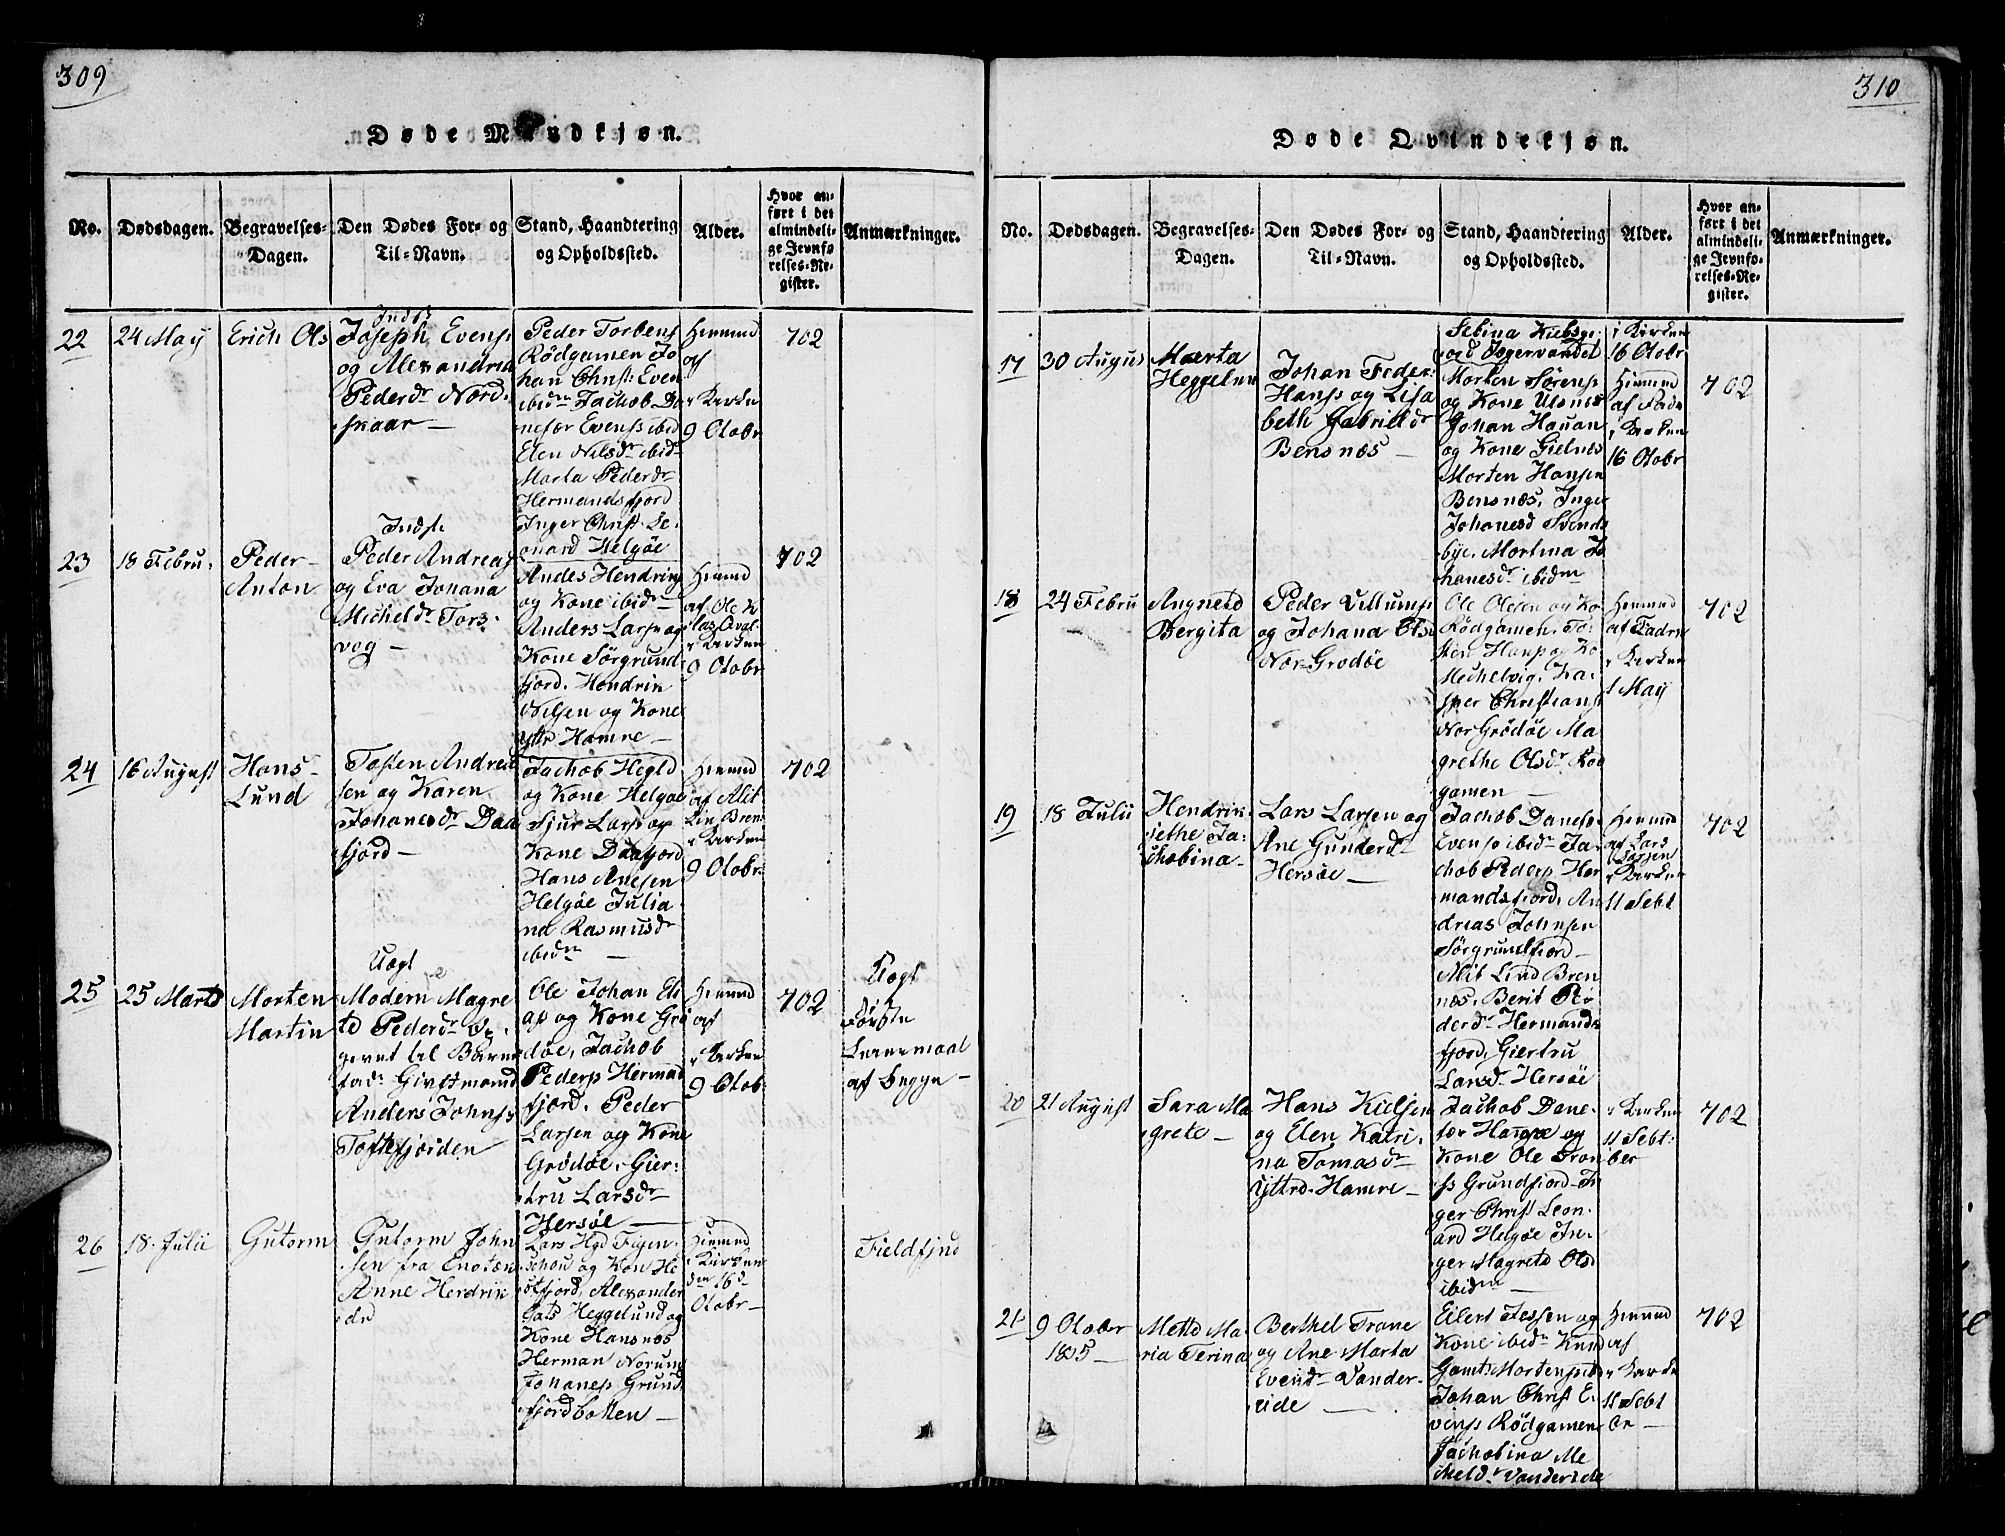 309
Døde Mandkjøn.
No.
Dødsdagen.
Begravelses-
Dagen.
Den Dødes For- og
Til-Navn.
Stand, Haandtering
og Opholdssted.
Alder.
Hvor an-
ført i det
almindeli-
ge Jevnfø-
relses-Re-
gister.
Anmærkninger.
22
24 May
Erich Ols
Indst
Joseph Evens
og Alexandria
Pederdr Nord-
skaar —
Peder Torbens
Rödgamen Jo
han Christ: Even
ibidm Jachob Da
Evens ibid
Elen Nilsdr ibidm
Marta Pederdr
Hermandsfjord
Inger Christ: Le-
onard Helgöe
Hiemmd
af
i Kirken
9 Otobr
702
23
18 Febru.
Peder
Anton
Indst.
Peder Andreas
og Eva Johana
Micheldr Tors-
vog —
Andes Hendrins
og Kone ibidm
Anders Larsen og
Kone Sörgrund
fjord. Hendrik
Nilsen og Kone
Yttr Hamre —
Hiemmd
af Ole K
i Kirken
9 Otobr
702
24
16 August
Hans
Lund
Tosten Andrea
sen og Karen
Johanesdr Daa
fjord —
Jachob Hegld
og Kone Helgöe
Sjur Lars og
Kone Daafjord
Hans Anesen
Helgöe Julia
na Rasmusdr
ibidm —
Hiemmd
af Alit
Lin Bren
i Kirken
9 Otobr.
702
25
25 Martd
Morten
Martin
Uægt
Modern Magre
td Pederdr
til Barne
fadr Givtmand
Anders Johns
Toftefjorden
Ole Johan El
og Kone Grö
döe, Jachob
Peders Hermad
fjord. Peder
Larsen og Kone
Grödöe. Gier-
tru Larsdr
Hersöe —
Hiemmd
af
i Kirken
9 Otobr
702
Uægt
Förste
Leiermaal
af begge —
26
18. Julii
Gutorm
Gutorm John
sen fra
Anne Hendrik
dr
Lars Hgd Figen-
schou og Kon
Alexander
Gats Heggelund og
Kone Hansnes
Herman Norum
Johanes Grund
fjordbotten —
Hiemmd
i Kirken
dn 16d
Otobr —
Fieldfjrd
310
Døde Qvindekjøn.
No.
Dødsdagen.
Begravelses-
Dagen.
Den Dødes For- og
Til-Navn.
Stand, Haandtering
og Opholdssted.
Alder.
Hvor an-
ført i det
almindeli-
ge Jevnfø-
relses-Re-
gister.
Anmærkninger.
17
30 Augus
Maarta
Heggelun
Johan Feder:
Hans og Lisa
beth Gabrieldr
Bensnæs —
Morten Sörens
og Kone Ulsnes
Johan Hauan
og Kone Gielnes
Morten Hansen
Bensnæs, Inger
Johanesd Svends
bye. Mortina Jo
hanesdr ibidm
i Kirken
16 Otobr
Hiemmd
af Fadr
i Kirken
16 Otobr
702
18
24 Febru
Angnetd
Bergita
Peder Villums
og Johana Ols
Nor-Grodöe
Ole Olesen og Ko
Rödgamen. To-
sten Hans og Ko
Mechelvig. Ka-
sper Christians
Nor Grödöe Ma
grethe Olsdr Röd
gamen —
Hiemmd
af Fadrn
i Kirken
1 May
702
19
18 Julii
Hendrik-
iethe Ja-
chobina —
Lars Larsen og
Ane Gunderdr
Hersöe —
Jachob Danes.
Evens ibidm Ja-
chob Peders Her
mandsfjord, An
dreas Johnsen
Sörgrundfjord —
Alit Lind Bren
næs. Berit Pe
derdr Hermands
fjord, Giertru
Larsdr Hersöe
Hiemmd
af Lars
Larsen
i Kirken
11 Sebt
702
20
21 August
Sara Ma
grete —
Hans Kielsen
og Elen Katri-
na Tomasdr
Yttrd-Hamre —
Jachob Dane-
Hans og
Kone Ole Tron
s Grundfiord. In
ger Christ Leon-
ard Helgöe In-
ger Magretd Ols
ibidm
i Kirken
11 Sebt:
ber
702
21
9 Otober
1825 —
Mette Ma
ria Terina
Berthel Trane
og Ane Marta
Evendr Vander-
eide —
Eilert Jessen og
Kone ibidm Knud
Gamt: Mortensnæs
Johan Christ E-
vens Rödgamen
Jachobina Me
cheldr Vandereide
Hiemmd
af
i Kirken
11 Sebt
br —
702